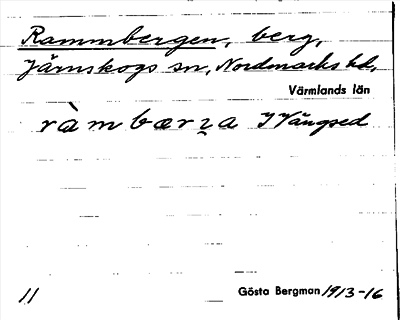 Rammbergen, berg,
Järnskogs sn, Nordmarks hd,
Värmlands län
ràmbærꝛa
11 Gösta Bergman 1913-16